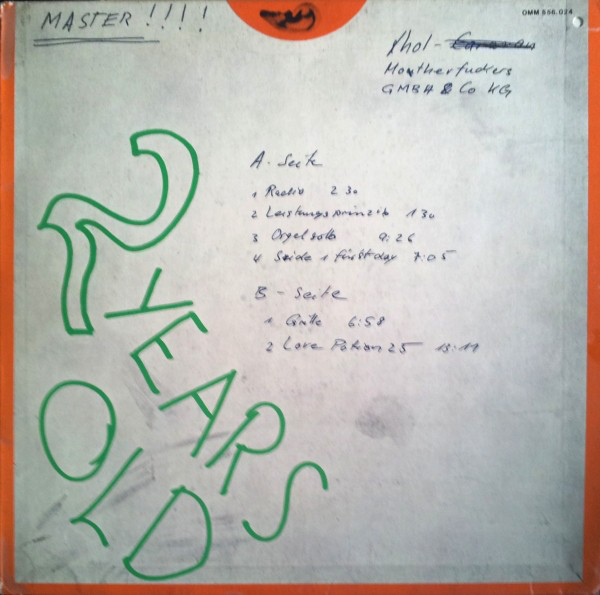 MASTER !!!!
OMM 556.024
Xhol - Caravan
Moutherfuckers
GMBH & Co KG
A - Seite
1 Radio 2 30
2 Leistungsprinzip 1 30
3 Orgelsolo 9:26
4 Seide 1 first day 7:05
B - Seite
1 Grille 6:58
2 Love Potion 25 13:11
2 YEARS OLD